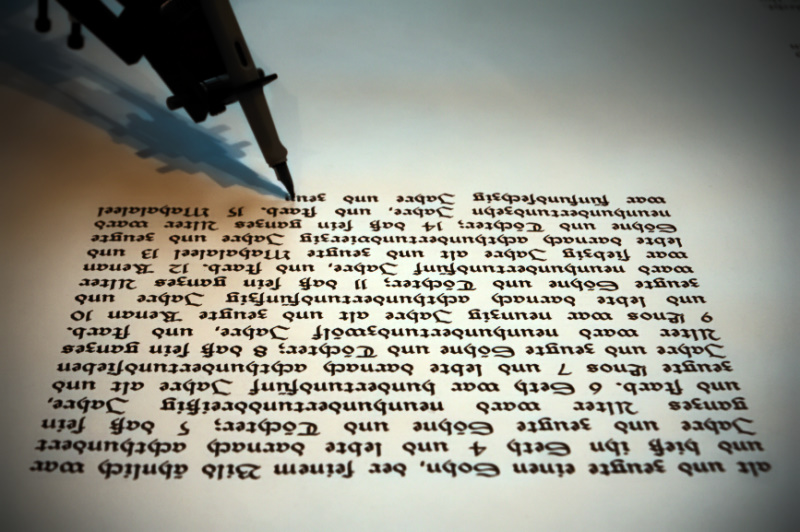 alt und zeugte einen Sohn, der seinem Bild ähnlich war
und hieß ihn Seth 4 und lebte darnach achthundert
Jahre und zeugte Söhne und Töchter; 5 daß sein
ganzes Alter ward neunhundertunddreißig Jahre,
und starb. 6 Seth war hundertundfünf Jahre alt und
zeugte Enos 7 und lebte darnach achthundertundsieben
Jahre und zeugte Söhne und Töchter; 8 daß sein ganzes
Alter ward neunhundertundzwölf Jahre, und starb.
9 Enos war neunzig Jahre alt und zeugte Kenan 10
und lebte darnach achthundertundfünfzig Jahre und
zeugte Söhne und Töchter; 11 daß sein ganzes Alter
ward neunhundertundfünf Jahre, und starb. 12 Kenan
war siebzig Jahre alt und zeugte Mahalaleel 13 und
lebte darnach achthundertundvierzig Jahre und zeugte
Söhne und Töchter; 14 daß sein ganzes Alter ward
neunhundertundzehn Jahre, und starb. 15 Mahalaleel
war fünfundsechzig Jahre und zeu